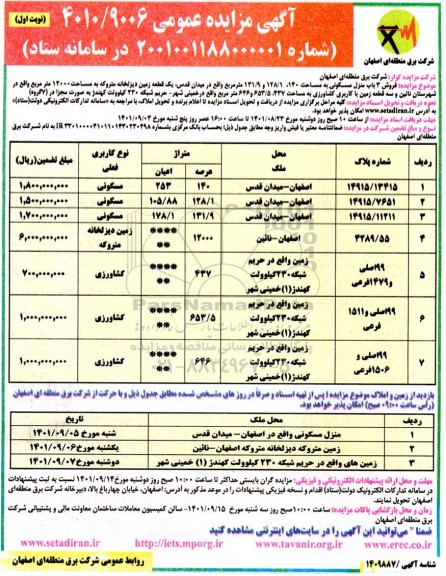 (نوبت اول)
آگهی مزایده عمومی ۴۰۱۰/۹۰۰۶
(شماره ۲۰۰۱۰۰۱۱۸۸۰۰۰۰۰۱ در سامانه ستاد)
شرکت برق منطقه‌ای اصفهان
شرکت مزایده گزار: شرکت برق منطقه‌ای اصفهان
موضوع مزایده: فروش ۳ باب منزل مسکونی به مساحت ۱۴۰، ۱۲۸/۱ و ۱۳۱/۹ مترمربع واقع در میدان قدس، یک قطعه زمین دیزلخانه متروکه به مساحت ۱۲۰۰۰ متر مربع واقع در
شهرستان نائین و سه قطعه زمین با کاربری کشاورزی به مساحت ۴۳۷، ۶۵۳/۵ و ۶۴۶ متر مربع واقع درخمینی شهر- حریم شبکه ۲۳۰ کیلوولت کهندژ به صورت مجزا در (۷گروه)
نحوه دریافت و تحویل اسناد مزایده: کلیه مراحل برگزاری مزایده از دریافت و تحویل اسناد مزایده تا اعلام برنده و تحویل املاک، با مراجعه به «سامانه تدارکات الکترونیکی دولت(ستاد)»
به آدرس www.setadiran.ir امکان پذیر خواهد بود.
مهلت دریافت اسناد مزایده: از ساعت ۱۰ صبح روز دوشنبه مورخ ۱۴۰۱/۰۸/۲۳ تا ساعت ۱۶:۰۰ عصر روز پنج شنبه مورخ ۱۴۰۱/۰۹/۰۳
منطقه‌ای اصفهان
ردیف | شماره پلاک | محل ملک | متراژ | نوع کاربری فعلی | مبلغ تضمین(ریال)
عرصه | اعیان
۱ | ۱۴۹۱۵/۱۳۴۱۵ | اصفهان-میدان قدس | ۱۴۰ | ۲۵۳ | مسکونی | ۱,۸۰۰,۰۰۰,۰۰۰
۲ | ۱۴۹۱۵/۷۶۵۱ | اصفهان-میدان قدس | ۱۲۸/۱ | ۱۰۵/۸۸ | مسکونی | ۱,۵۰۰,۰۰۰,۰۰۰
۳ | ۱۴۹۱۵/۱۱۲۱۱ | اصفهان-میدان قدس | ۱۳۱/۹ | ۱۷۸/۱ | مسکونی | ۱,۷۰۰,۰۰۰,۰۰۰
۴ | ۴۲۸۹/۵۵ | اصفهان-نائین | ۱۲۰۰۰ | ****** | زمین دیزلخانه متروکه | ۶,۰۰۰,۰۰۰,۰۰۰
۵ | ۹۹اصلی و۱۴۷۹فرعی | زمین واقع در حریم شبکه۲۳۰کیلوولت کهندژ(۱)خمینی شهر | ۴۳۷ | ****** | کشاورزی | ۷۰۰,۰۰۰,۰۰۰
۶ | ۹۹اصلی و۱۵۱۱ فرعی | زمین واقع در حریم شبکه۲۳۰کیلوولت کهندژ(۱)خمینی شهر | ۶۵۳/۵ | ****** | کشاورزی | ۱,۰۰۰,۰۰۰,۰۰۰
۷ | ۹۹اصلی و ۱۵۰۶فرعی | زمین واقع در حریم شبکه۲۳۰کیلوولت کهندژ(۱)خمینی شهر | ۶۴۶ | ****** | کشاورزی | ۱,۰۰۰,۰۰۰,۰۰۰
بازدید از زمین و املاک موضوع مزایده ( پس از تهیه اسناد و صرفاً در روز های مشخص شده مطابق جدول ذیل و با حرکت از شرکت برق منطقه ای اصفهان
(رأس ساعت ۰۹:۰۰ صبح) امکان پذیر خواهد بود.
ردیف | محل ملک | تاریخ
۱ | منزل مسکونی واقع در اصفهان- میدان قدس | شنبه مورخ ۱۴۰۱/۰۹/۰۵
۲ | زمین متروکه دیزلخانه متروکه اصفهان-نائین | یکشنبه مورخ۱۴۰۱/۰۹/۰۶
۳ | زمین های واقع در حریم شبکه ۲۳۰ کیلوولت کهندژ (۱) خمینی شهر | دوشنبه مورخ۱۴۰۱/۰۹/۰۷
مهلت و محل ارائه پیشنهادات الکترونیکی و فیزیکی: مزایده گران بایستی حداکثر تا ساعت ۱۰:۰۰ صبح روز دوشنبه مورخ۱۴۰۱/۰۹/۱۴ نسبت به ثبت پیشنهادات
در سامانه تدارکات الکترونیک دولت(ستاد) اقدام و نسخه فیزیکی پیشنهادات را در موعد مذکور به آدرس: اصفهان، خیابان چهارباغ بالا، دبیرخانه شرکت برق منطقه‌ای
اصفهان تحویل نمایند.
زمان و محل بازگشایی پاکات مزایده: ساعت ۱۰:۰۰صبح روز سه شنبه مورخ ۱۴۰۱/۰۹/۱۵- سالن کمیسیون معاملات ساختمان معاونت مالی و پشتیبانی شرکت
برق منطقه‌ای اصفهان
ضمناً " می‌توانید این آگهی را در سایت‌های اینترنتی مشاهده کنید
www.setadiran.ir http://iets.mporg.ir www.tavanir.org.ir www.erec.co.ir
شناسه آگهی /۱۴۰۹۸۸۷ روابط عمومی شرکت برق منطقه‌ای اصفهان